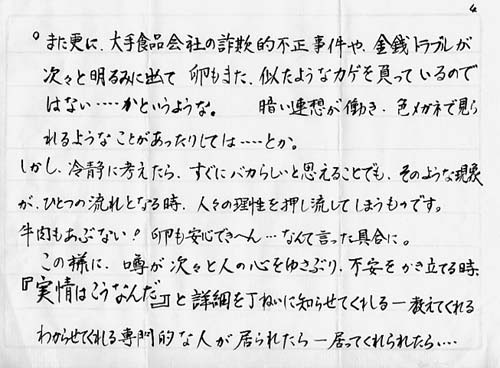 4
。また更に、大手食品会社の詐欺的不正事件や、金銭トラブルが
次々と明るみに出て 卵もまた、似たようなカゲを負っているので
はない‥‥かというような。 暗い連想が働き、色メガネで見ら
れるようなことがあったりしては‥‥とか。
しかし、冷静に考えたら、すぐにバカらしいと思えることでも、そのような現象
が、ひとつの流れとなる時、人々の理性を押し流してしまうものです。
牛肉もあぶない! 卵も安心できへん…なんて言った具合に。
この様に、噂が次々と人の心をゆさぶり、不安をかき立てる時、
『実情はこうなんだ』と詳細を丁ねいに知らせてくれる—教えてくれる
わからせてくれる専門的な人が居られたら—居ってくれられたら‥‥